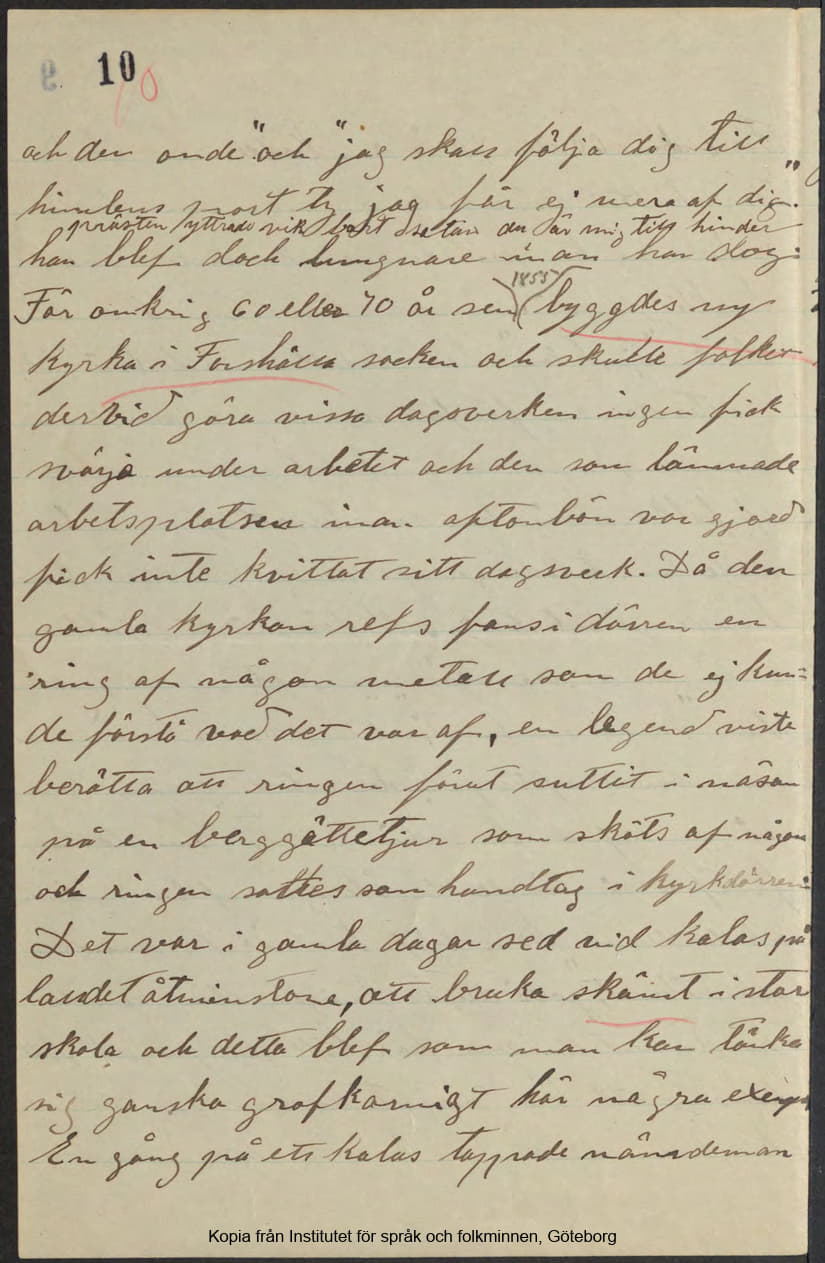 9 10
10
och den onde "och "jag skall följa dig till
himlens port ty jag får ej mera af dig."
prästen yttrade vik bort satan du är mig till hinder
han blef dock lungnare innan han dog.
För omkring 60 eller 70 år sen (1855) byggdes ny
Kyrka i Forshälla socken och skulle folket
dervid göra vissa dagsverken ingen fick
svärja under arbetet och den som lämnade
arbetsplatsen inan aftonbön var gjord
fick inte kvittat sitt dagsverk. Då den
gamla kyrkan refs fans i dörren en
ring af någon metall som de ej kun=
de förstå vad det var af, en legend viste
berätta att ringen förut suttit i näsan
på en berggåttetjur som sköts af någon
och ringen sattes som handtag i kyrkdörren.
Det var i gamla dagar sed vid kalas på
landet åtminstone, att bruka skämt i stor
skala och detta blef som man kan tänka
sig ganska grofkornigt här några exemp
En gång på ett kalas tappade nämdeman
Kopia från Institutet för språk och folkminnen, Göteborg